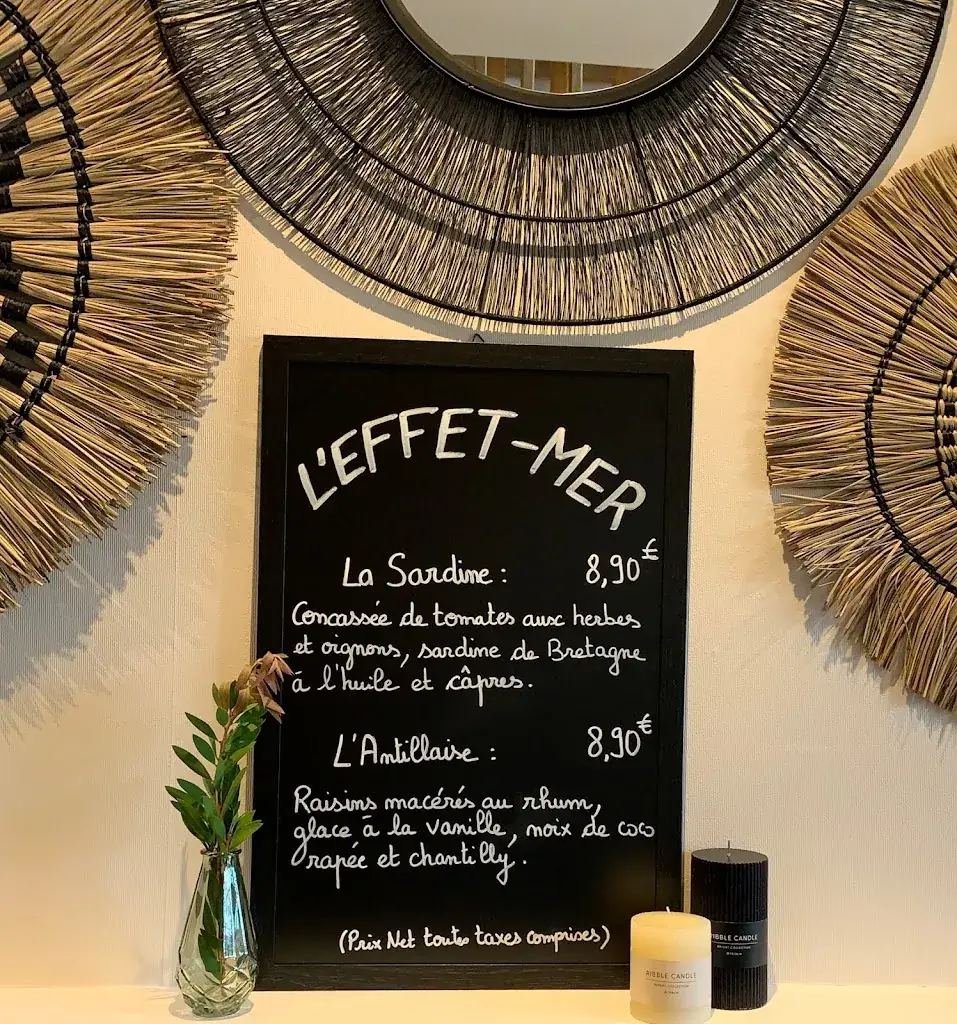 L'EFFET-MER
La Sardine : 8,90€
Concassée de tomates aux herbes
et oignons, sardine de Bretagne
à l'huile et câpres.
L'Antillaise : 8,90€
Raisins macérés au rhum,
glace à la vanille, noix de coco
rapée et chantilly.
(Prix Net toutes taxes comprises)
RIBBLE CANDLE
RIBBLE CANDLE